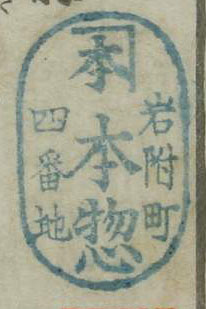 岩附町
本
本惣
四番地